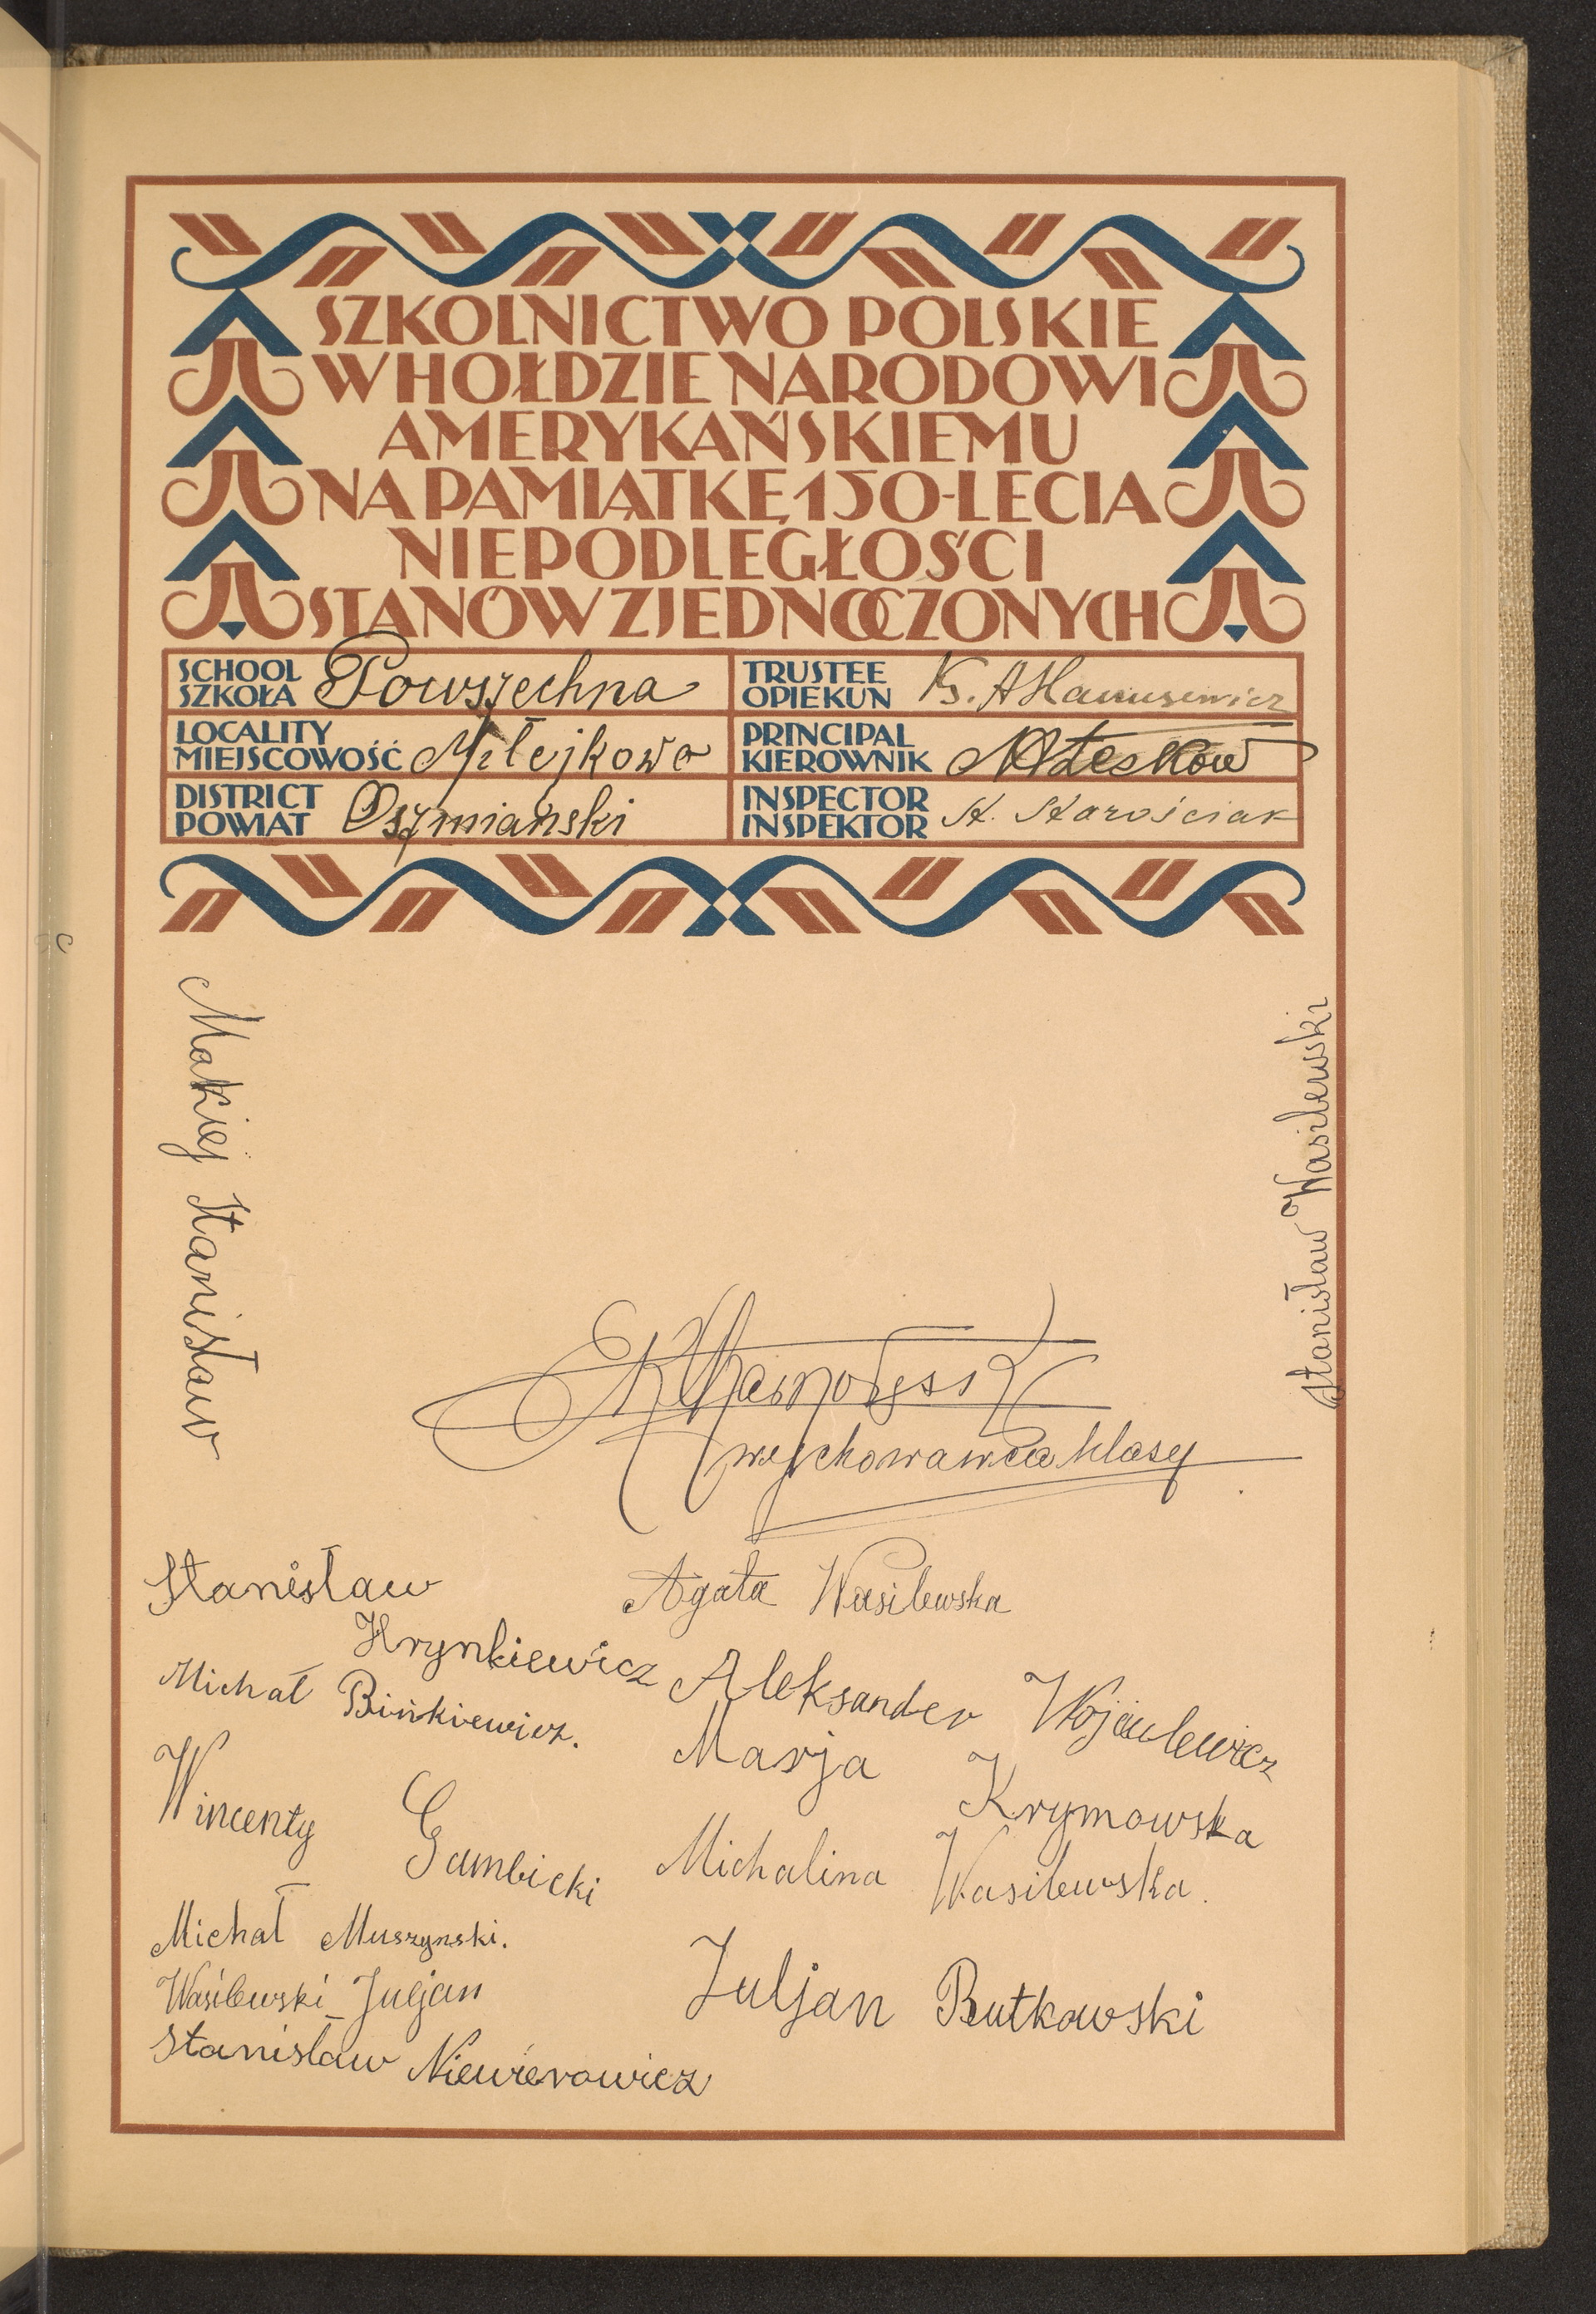 SZKOLNICTWO POLSKIE
W HOŁDZIE NARODOWI
AMERYKAŃSKIEMU
NA PAMIĄTKĘ 150-LECIA
NIEPODLEGŁOŚCI
STANÓW ZJEDNOCZONYCH
SCHOOL
SZKOŁA Powszechna
TRUSTEE
OPIEKUN Ks. A Hanusewicz
LOCALITY
MIEJSCOWOŚĆ Miłejkowo
PRINCIPAL
KIEROWNIK
DISTRICT
POWIAT Oszmiański
INSPECTOR
INSPEKTOR St. Starościak
Makiej Stanisław
Stanisław Wasilewski
wychowawca klasy
Stanisław
Hrynkiewicz
Agata Wasilewska
Michał Bińkiewicz.
Aleksander Wojciulewicz
Marja Krymowska
Wincenty Gumbicki
Michalina Wasilewska.
Michał Muszynski.
Wasilewski Juljan
Juljan Rutkowski
Stanisław Niewierowicz